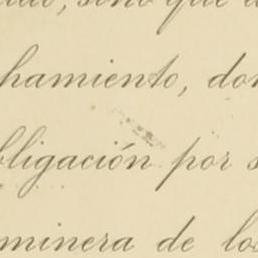 sino que
hamiento, don
bligación por s
minera de los